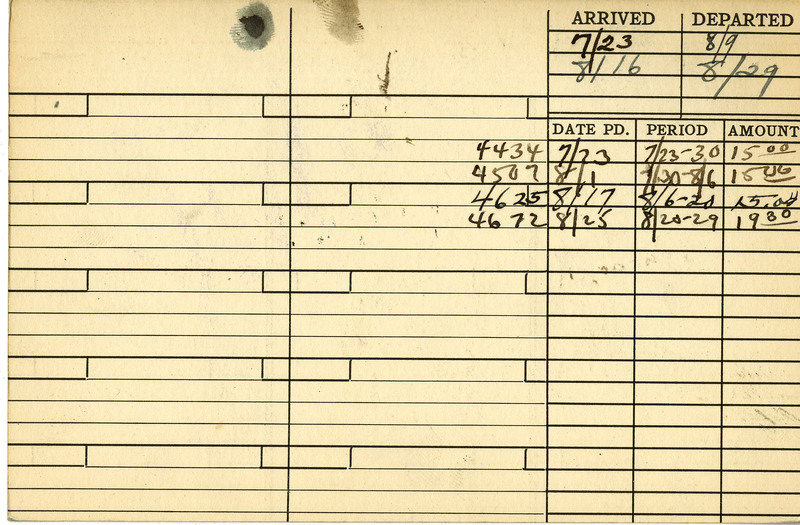 ARRIVED DEPARTED
7/23 8/9
8/16 8/29
DATE PD. PERIOD AMOUNT
4434 7/23 7/23-30 15 00
4507 8/1 7/30-8/6 15 00
4625 8/17 8/6-20 15.00
4672 8/25 8/20-29 19 30